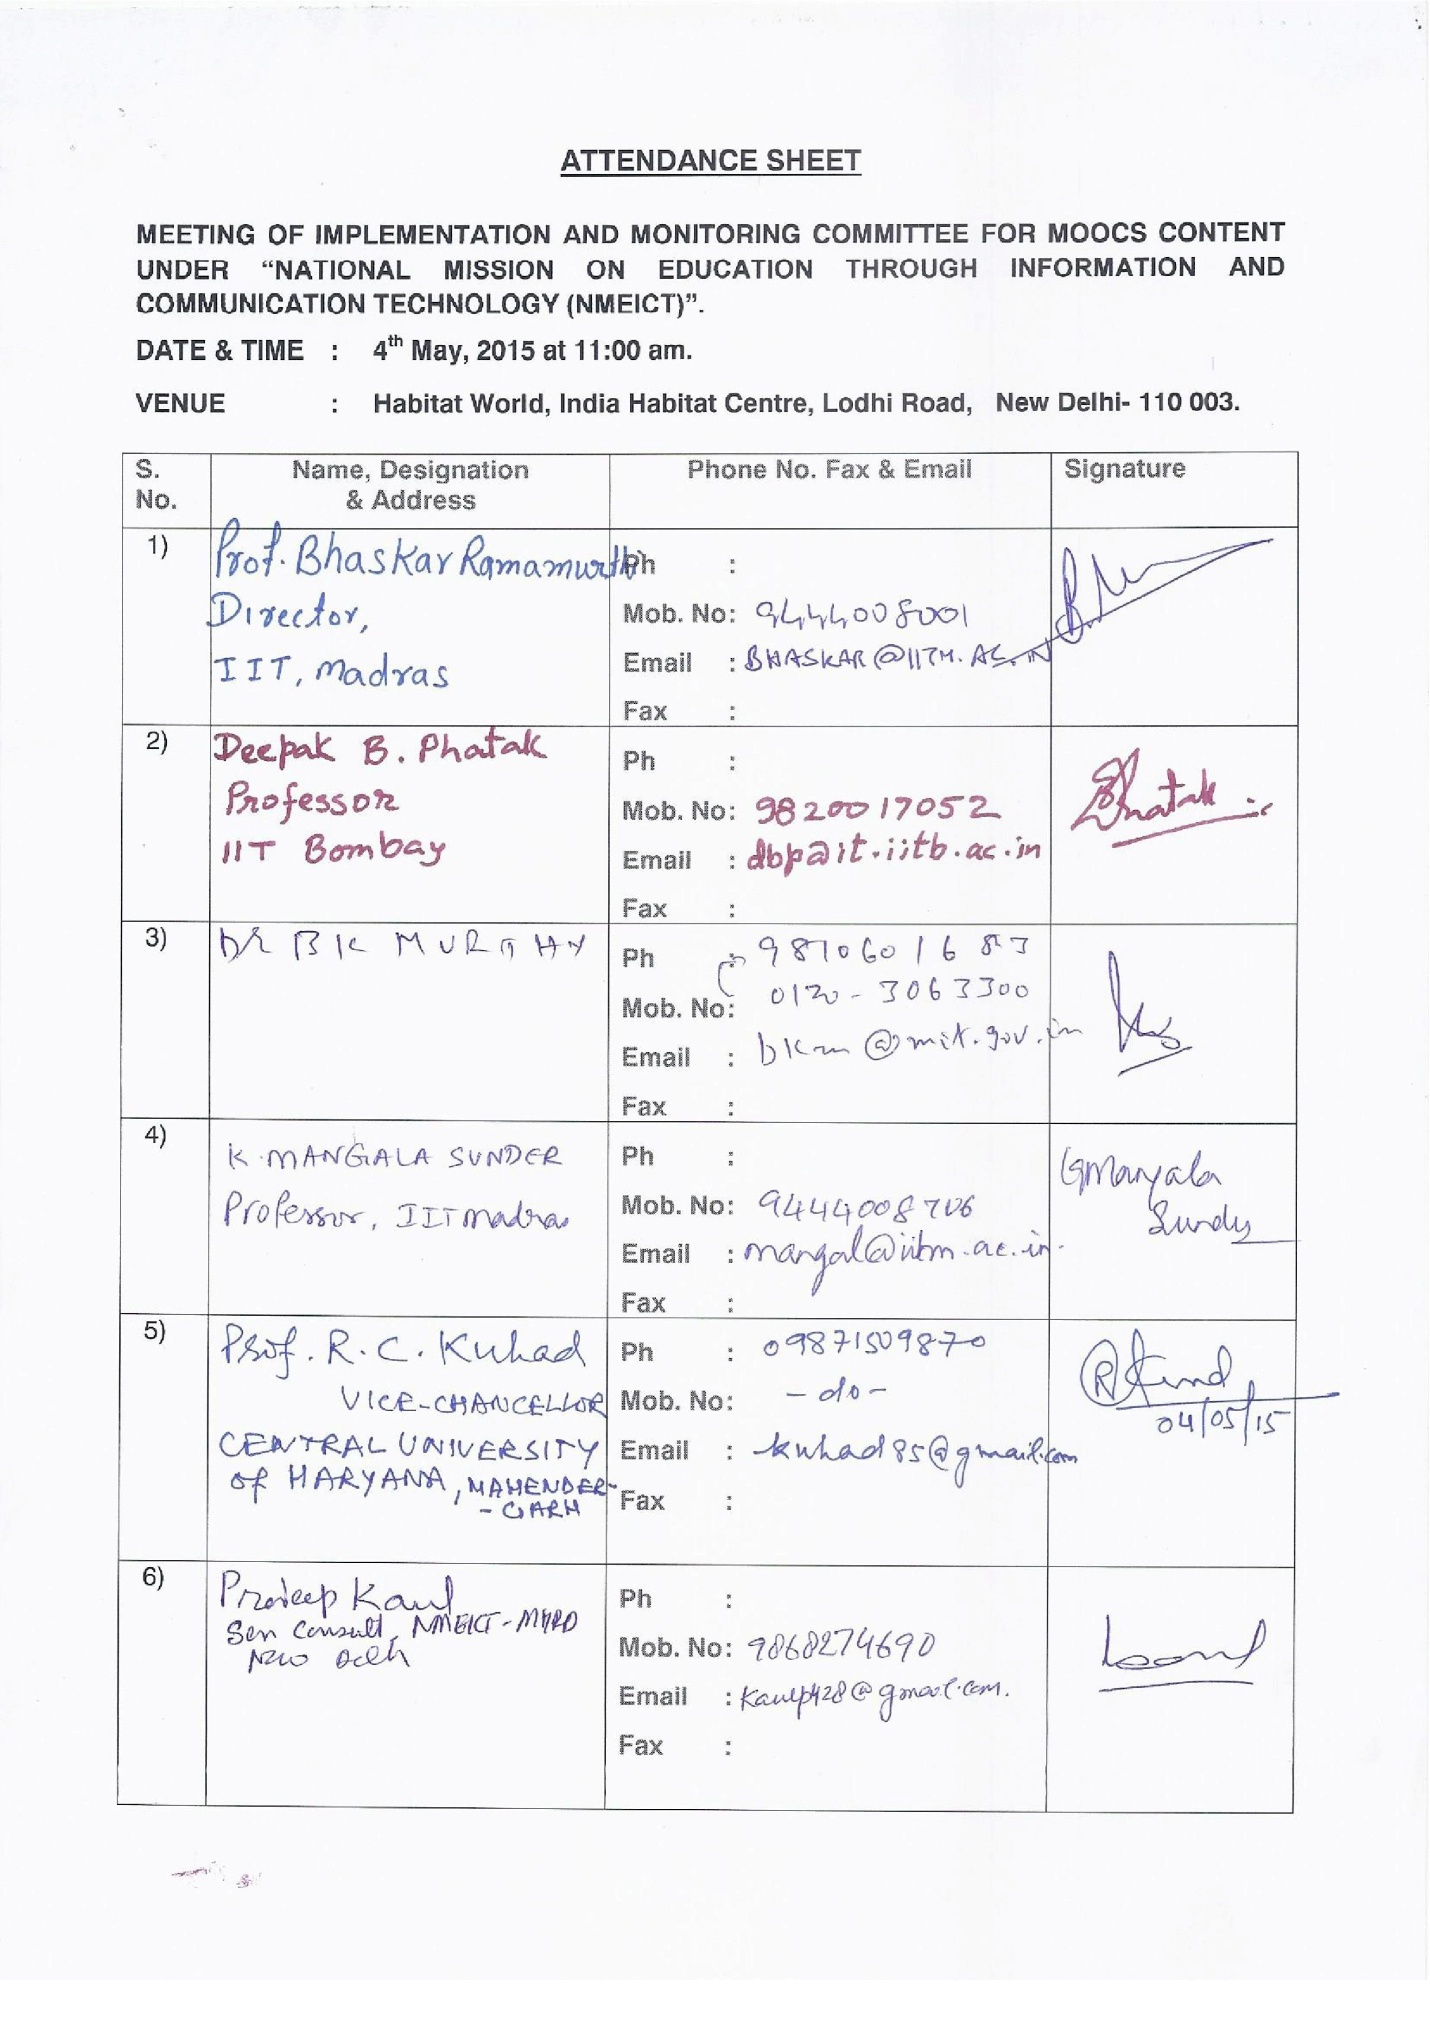 ATTENDANCE SHEET
MEETING OF IMPLEMENTATION AND MONITORING COMMITTEE FOR MOOCS CONTENT
UNDER “NATIONAL MISSION ON EDUCATION THROUGH INFORMATION AND
COMMUNICATION TECHNOLOGY (NMEICT)”.
DATE & TIME : 4th May, 2015 at 11:00 am.
VENUE : Habitat World, India Habitat Centre, Lodhi Road, New Delhi- 110 003.
S. No.
Name, Designation & Address
Phone No. Fax & Email
Signature
1)
Prof. Bhaskar Ramamurthi
Director,
IIT, Madras
Ph :
Mob. No: 9444008001
Email : BHASKAR@IITM.AC.IN
Fax :
2)
Deepak B. Phatak
Professor
IIT Bombay
Ph :
Mob. No: 9820017052
Email : dbp@it.iitb.ac.in
Fax :
Phatak
3)
DR B K MURTHY
Ph : 9810601683
Mob. No: 0120-3063300
Email : bkm@mit.gov.in
Fax :
4)
K. MANGALA SUNDER
Professor, IIT Madras
Ph :
Mob. No: 9444008706
Email : mangal@iitm.ac.in
Fax :
Mangala
Sunder
5)
Prof. R. C. Kuhad
VICE-CHANCELLOR
CENTRAL UNIVERSITY
of HARYANA, MAHENDER-
-GARH
Ph : 09871509870
Mob. No: -do-
Email : kuhad85@gmail.com
Fax :
04/05/15
6)
Pradeep Kaul
Sen Consult, NMEICT-MHRD
New Delh
Ph :
Mob. No: 9868274690
Email : Kaulp428@gmail.com.
Fax :